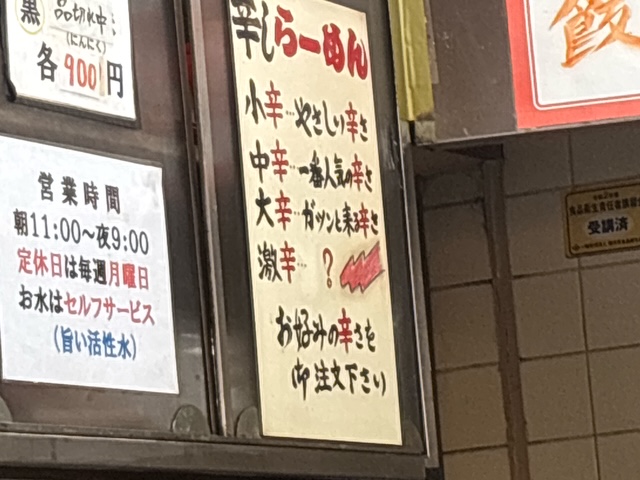 黒 品切れ中
(にんにく)
各900円
営業時間
朝11:00〜夜9:00
定休日は毎週月曜日
お水はセルフサービス
(旨い活性水)
辛しらーめん
小辛…やさしい辛さ
中辛…一番人気の辛さ
大辛…ガツンと来る辛さ
激辛…?
お好みの辛さを
御注文下さい
飯
受講済